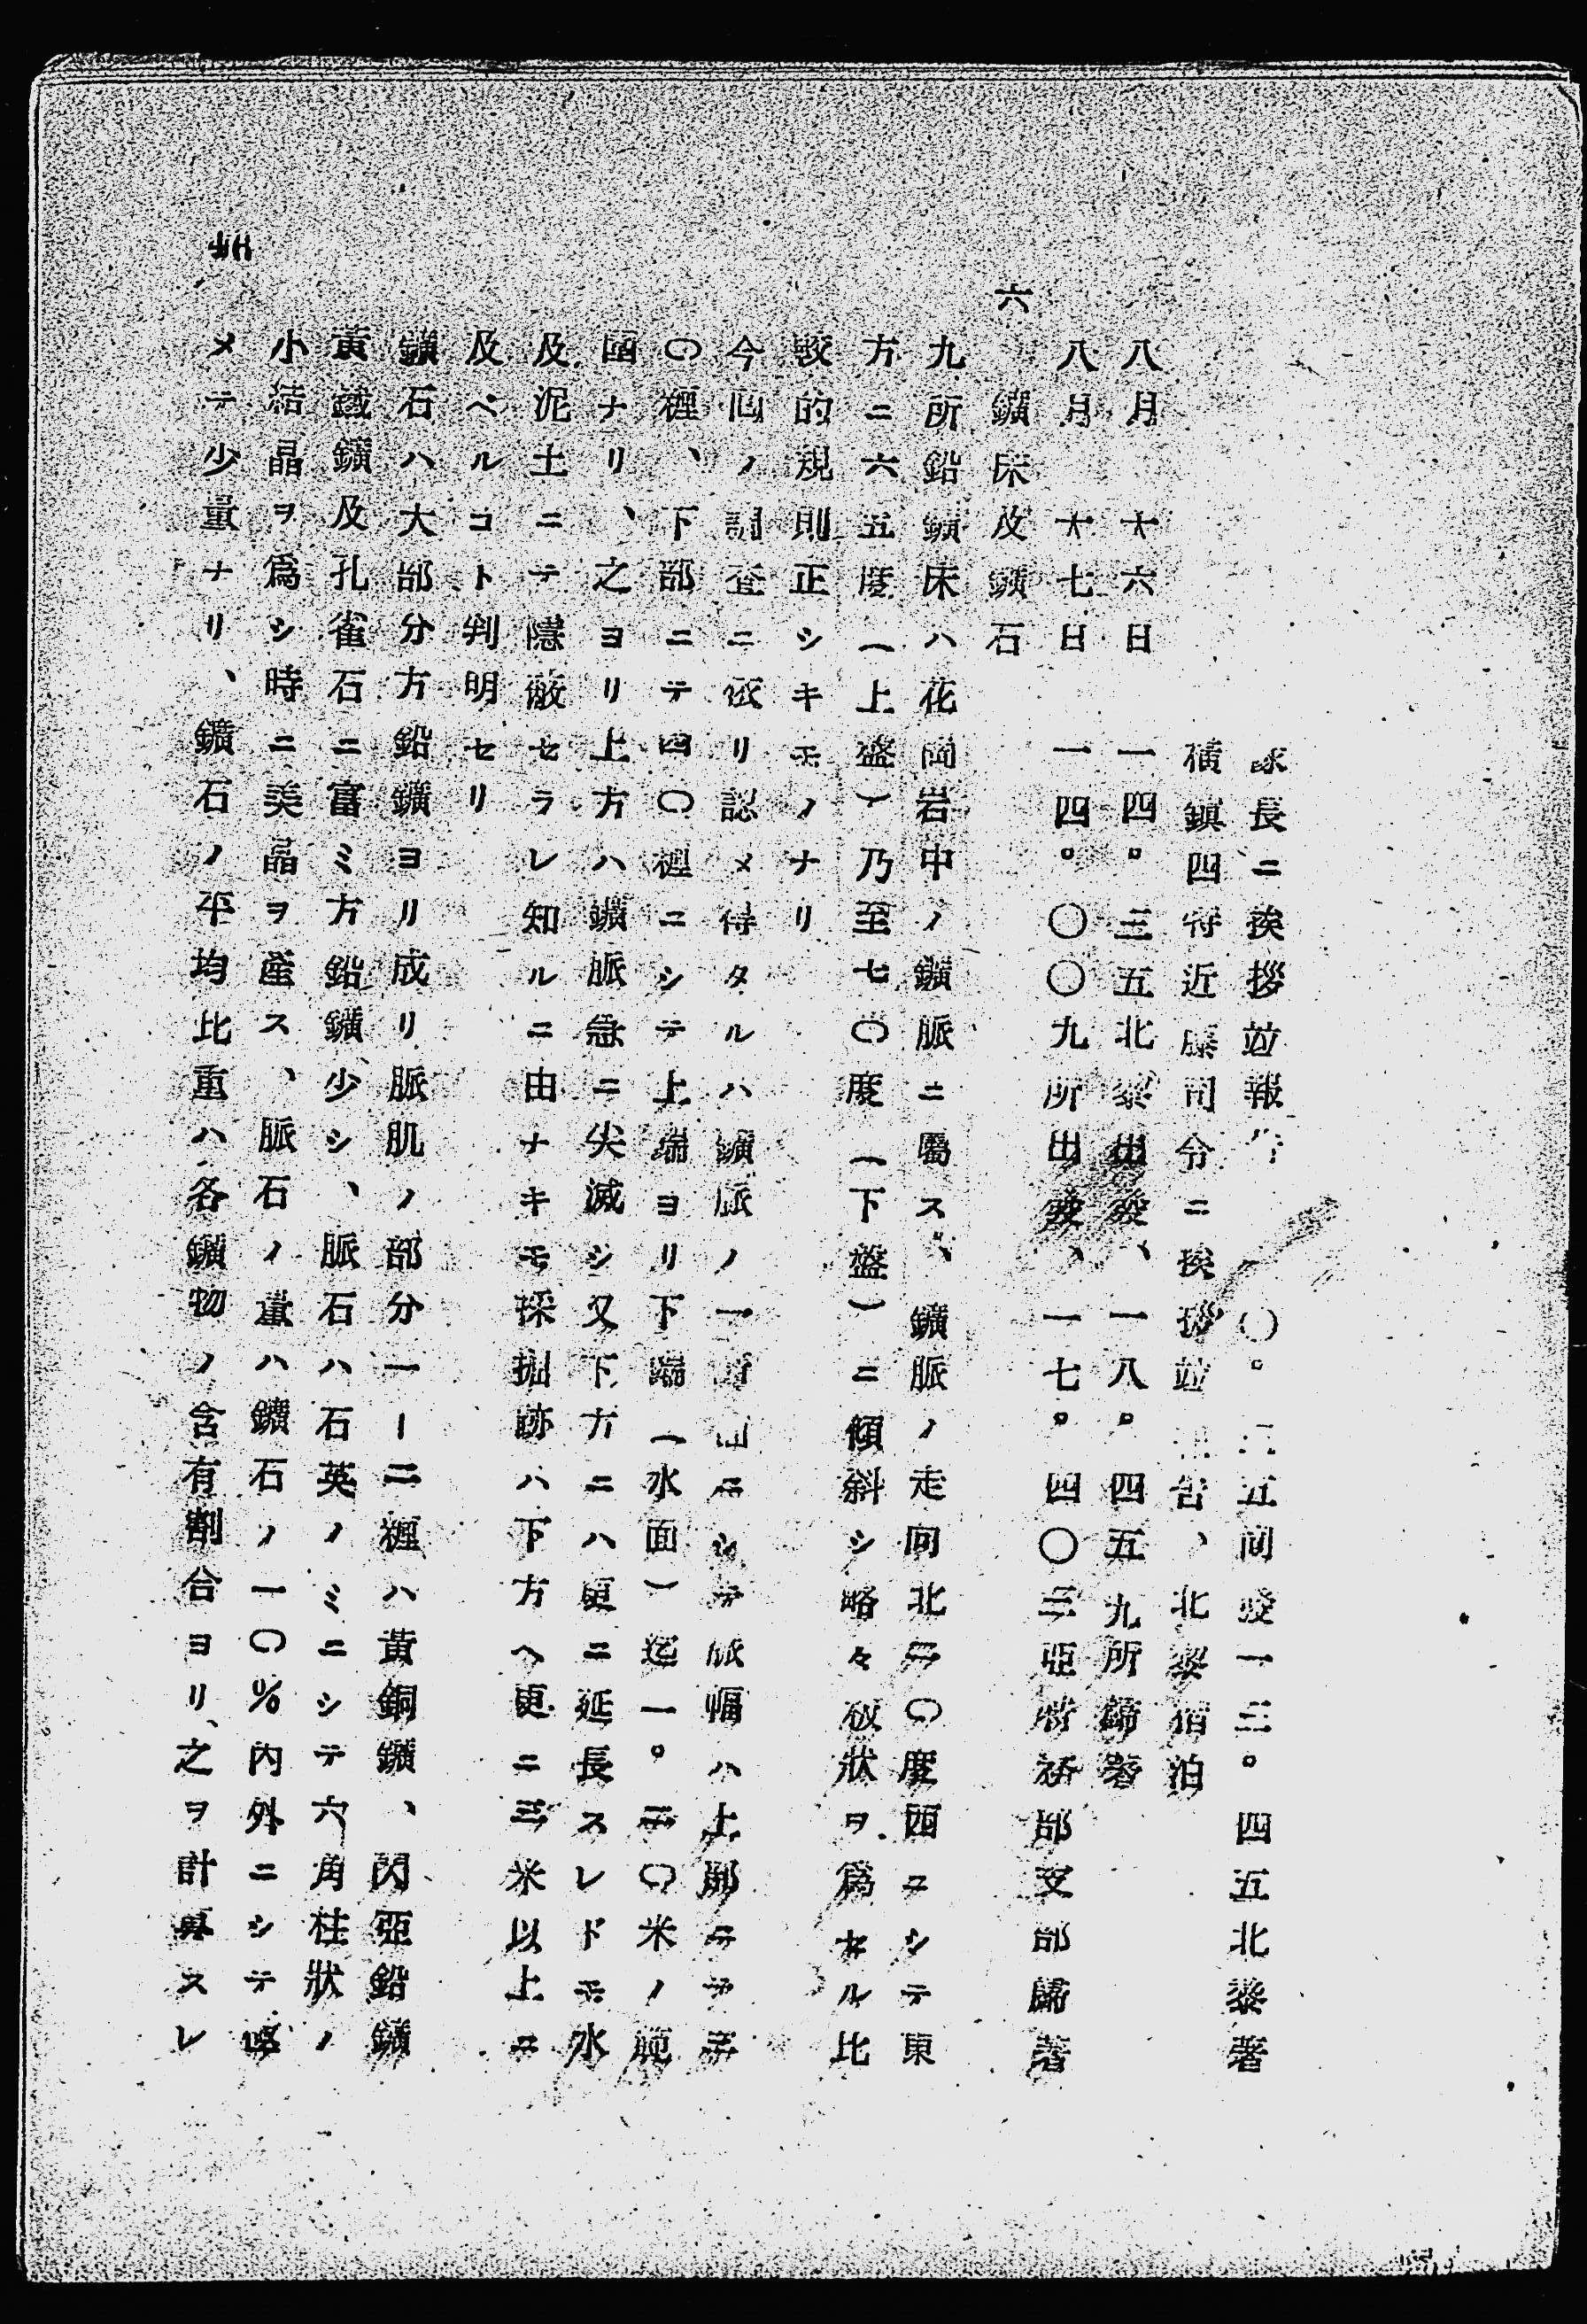 隊長ニ挨拶竝報告 一〇。 五同發一三。四五北黎著
橫鎭四特近藤司令ニ挨拶竝 告、北黎宿泊
八月 十六日 一四。三五北黎出發、一八。四五九所歸著
八月 十七日 一四。〇〇九所出發、一七。四〇三亞 部支部歸著
六 鑛床及鑛石
九所鉛鑛床ハ花崗岩中ノ鑛脈ニ屬ス、鑛脈ノ走向北二〇度西ニシテ東
方ニ六五度(上盤)乃至七〇度(下盤)ニ傾斜シ略々板狀ヲ爲セル比
較的規則正シキモノナリ
今囘ノ調査ニ依リ認メ得タルハ鑛脈ノ一 ニシテ脈幅ハ上部ニテ三
〇糎、下部ニテ四〇糎ニシテ上端ヨリ下端(水面)迄一。二〇米ノ範
圍ナリ、之ヨリ上方ハ鑛脈急ニ尖滅シ又下方ニハ更ニ延長スレドモ水
及泥土ニテ隱蔽セラレ知ルニ由ナキモ採掘跡ハ下方ヘ更ニ三米以上ニ
及ベルコト判明セリ
鑛石ハ大部分方鉛鑛ヨリ成リ脈肌ノ部分一ー二糎ハ黃銅鑛、閃亞鉛鑛
黃鐵鑛及孔雀石ニ富ミ方鉛鑛少シ、脈石ハ石英ノミニシテ六角柱狀ノ
小結晶ヲ爲シ時ニ美晶ヲ產ス、脈石ノ量ハ鑛石ノ一〇%內外ニシテ極
メテ少量ナリ、鑛石ノ平均比重ハ各鑛物ノ含有割合ヨリ之ヲ計算スレ